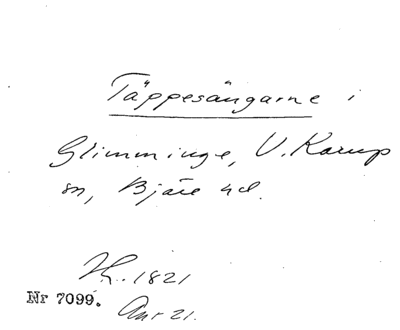 Täppesångarne i
Glimminge, V. Karup
sn, Bjäre hd.
1821
Nr 7099.
21.